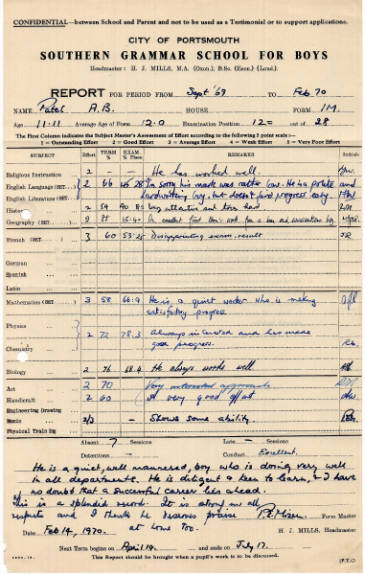 CONFIDENTIAL—between School and Parent and not to be used as a Testimonial or to support applications.
CITY OF PORTSMOUTH
SOUTHERN GRAMMAR SCHOOL FOR BOYS
Headmaster: H. J. MILLS, M.A. (Oxon.), B.Sc. (Econ.) (Lond.).
REPORT FOR PERIOD FROM Sept '69 TO Feb 70
NAME Patel A.B. HOUSE FORM 1M
Age 11·11 Average Age of Form 12·0 Examination Position 12= out of 28
The First Column indicates the Subject Master's Assessment of Effort according to the following 5 point scale :—
1 = Outstanding Effort 2 = Good Effort 3 = Average Effort 4 = Weak Effort 5 = Very Poor Effort
SUBJECT Effort TERM % EXAM % REMARKS Initials
Religious Instruction 2 — He has worked well.
English Language (SET ) 2 66 I'm sorry his mark was rather low. He is a polite and
English Literature (SET ) hardworking boy, but doesn't find progress easy.
History 2 54 Very attentive and tries hard.
Geography (SET ) 2 An excellent first term's work from a keen and hardworking boy
French (SET ) 3 60 53·25 Disappointing exam. result
German
Spanish
Latin
Mathematics (SET ) 3 58 66·9 He is a quiet worker who is making
satisfactory progress
Physics
Chemistry 2 72 78·3 Always interested and has made
good progress.
Biology 2 76 68·4 He always works well
Art 2 70 Very interested
Handicraft 2 60 A very good effort
Engineering Drawing
Music 2/3 — Shows some ability.
Physical Training
Absent 7 Sessions Late — Sessions
Detentions — Conduct Excellent.
He is a quiet, well mannered, boy who is doing very well
in all departments. He is diligent & keen to learn, & I have
no doubt that a successful career lies ahead.
This is a splendid record. It is strong in all
respects and I think he deserves praise Form Master
at home too. H. J. MILLS, Headmaster
Date Feb 14, 1970.
Next Term begins on April 14 and ends on July 17.
This Report should be brought when a pupil's work is to be discussed. (P.T.O.)